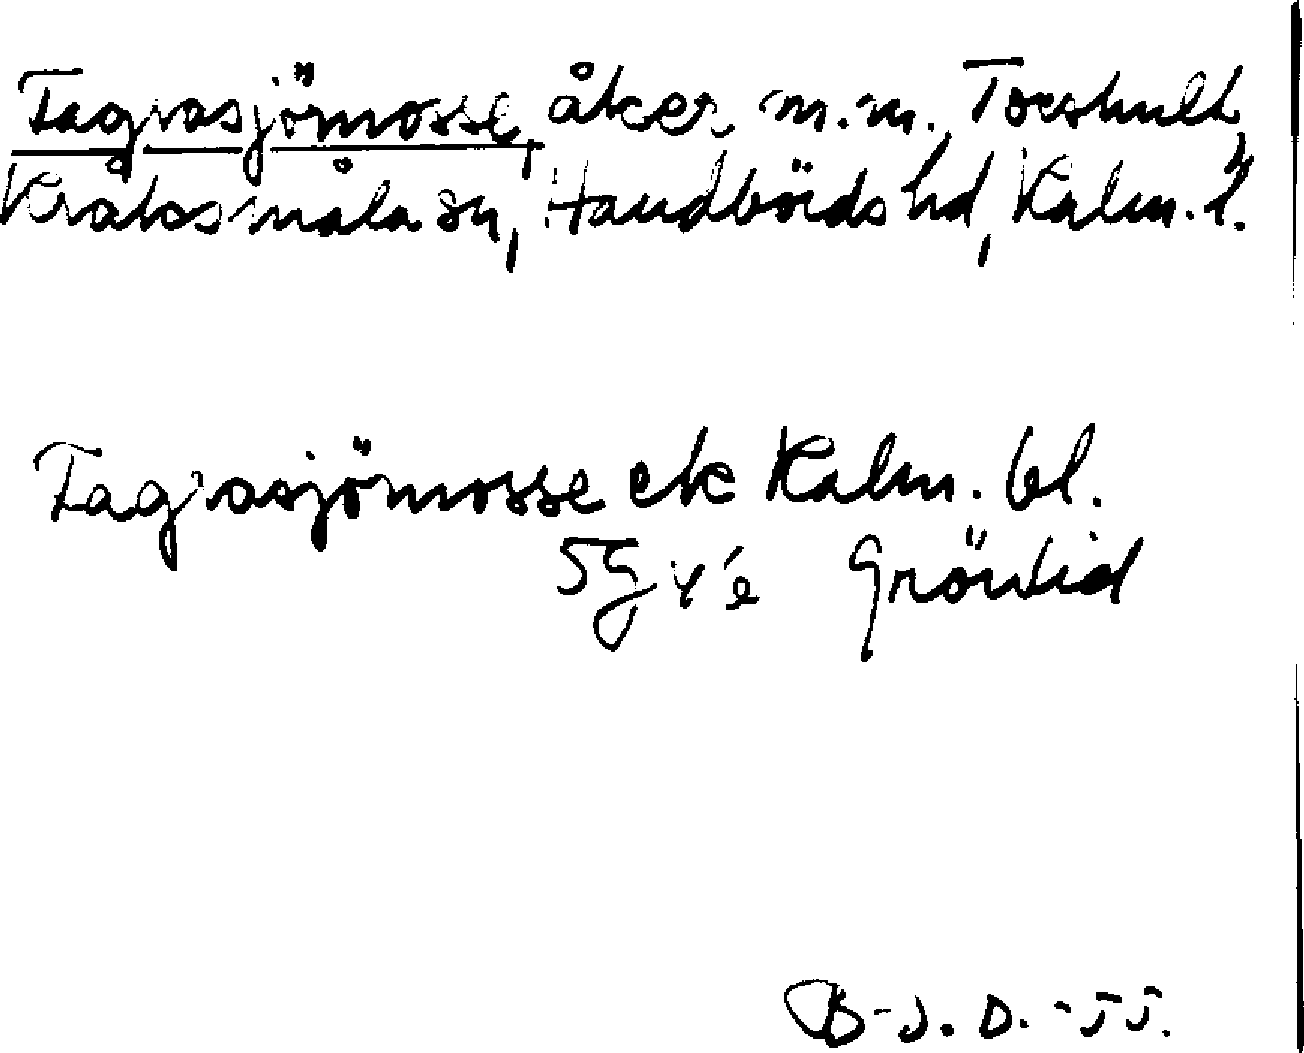 Fagrasjömosse, åker m.m., Toreshult,
Kråksmåla sn, Handbörds hd, Kalm. l.
Fagrasjömosse ek Kalm. bl.
5G Grönlid
B-J. D. -55.